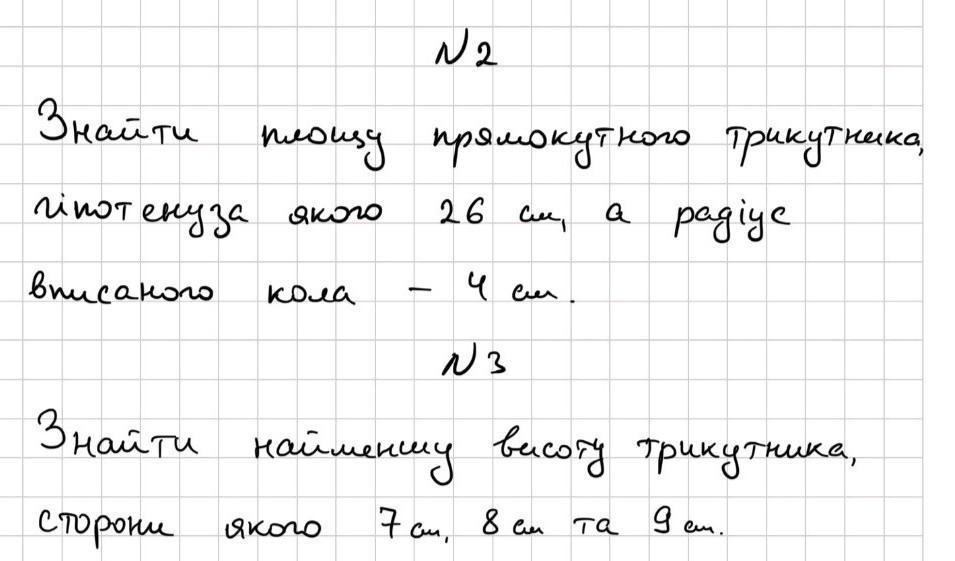 N2
Знайти площу прямокутного трикутника,
гіпотенуза якого 26 см, а радіус
вписаного кола – 4 см.
N3
Знайти найменшу висоту трикутника,
сторони якого 7 см, 8 см та 9 см.